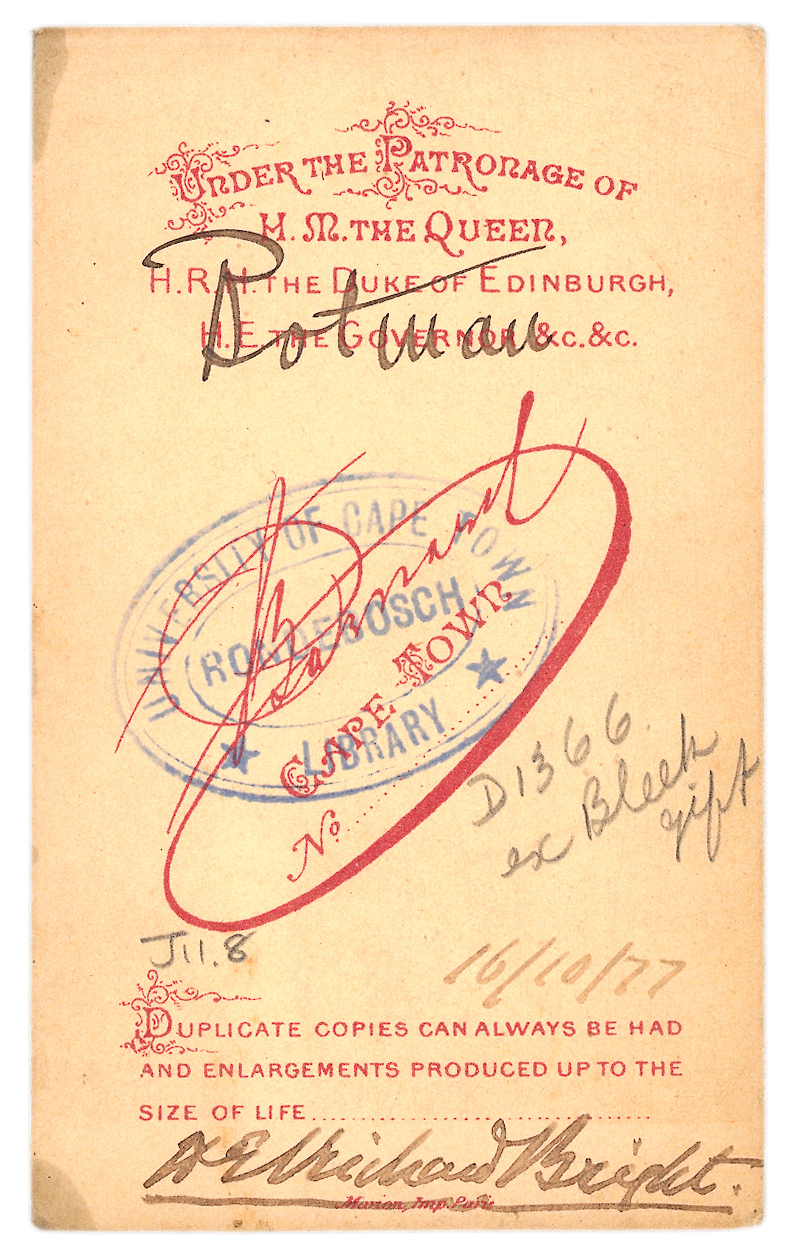 UNDER THE PATRONAGE OF
H. M. THE QUEEN,
H.R.H. THE DUKE OF EDINBURGH,
H.E. THE GOVERNOR &C.&C.
Potman
S. B. Barnard
CAPE TOWN
No
UNIVERSITY OF CAPE TOWN
RONDEBOSCH
LIBRARY
D1366
ex Bleek
gift
J11.8
16/10/77
DUPLICATE COPIES CAN ALWAYS BE HAD
AND ENLARGEMENTS PRODUCED UP TO THE
SIZE OF LIFE
Richard Bright.
Marion, Imp. Paris